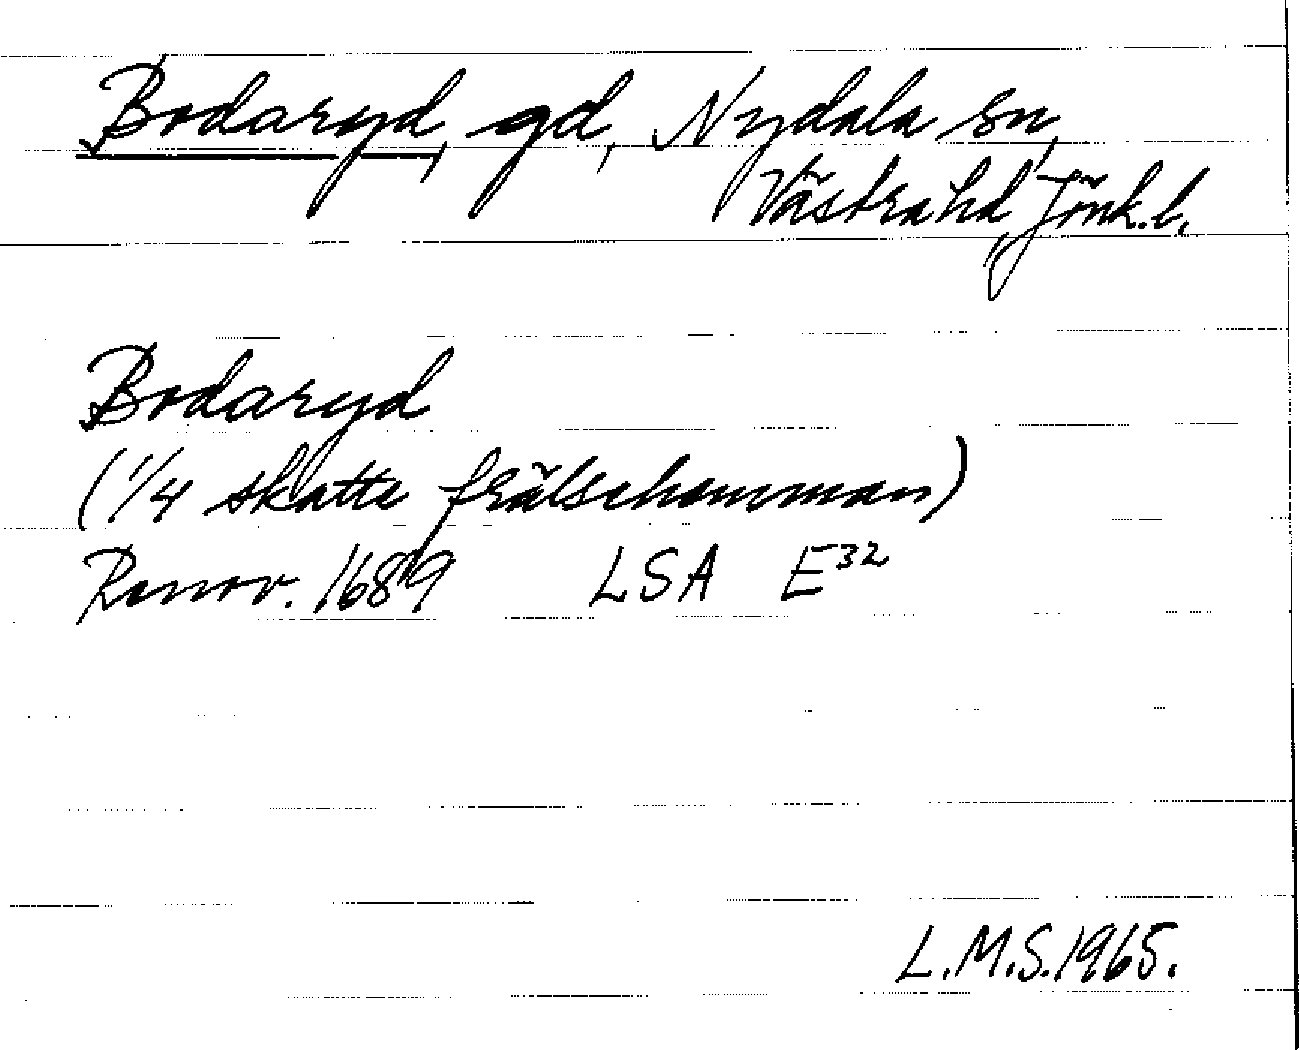 Bodaryd, gd, Nydala sn,
Västra hd, Jönk. l.
Bodaryd
(1/4 skatte frälsehemman)
Renov. 1689 LSA E32
L.M.S. 1965.